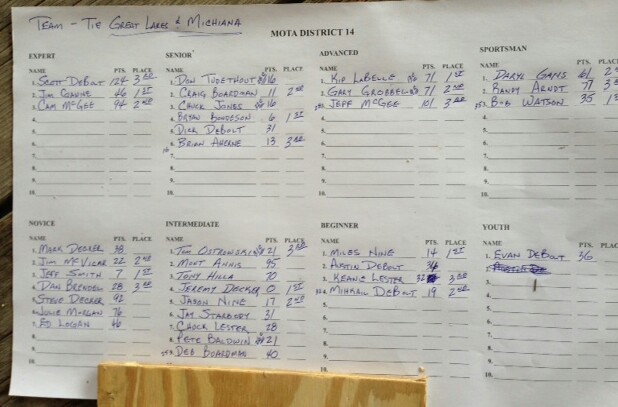 TEAM - TIE GREAT LAKES & MICHIANA
MOTA DISTRICT 14
EXPERT
NAME PTS. PLACE
1. SCOTT DEBOLT 124 3RD
2. JIM 46 1ST
3. CAM MCGEE 94 2ND
4.
5.
6.
7.
8.
9.
10.
SENIOR
NAME PTS. PLACE
1. DON 16
2. CRAIG BOARDMAN 11 2ND
3. CHUCK JONES 16
4. BRYAN 6 1ST
5. DICK DEBOLT 31
6. BRIAN AHERNE 13 3RD
7.
8.
9.
10.
ADVANCED
NAME PTS. PLACE
1. KIP LABELLE 71 1ST
2. GARY GROBBEL 71 2ND
3. JEFF MCGEE 101 3RD
4.
5.
6.
7.
8.
9.
10.
SPORTSMAN
NAME PTS. PLACE
1. DARYL GAMS 61 2
2. RANDY ARNDT 77 3
3. BOB WATSON 35 1
4.
5.
6.
7.
8.
9.
10.
NOVICE
NAME PTS. PLACE
1. MARK DECKER 38
2. JIM MCVICAR 22 2ND
3. JEFF SMITH 7 1ST
4. DAN BRENDEL 28 3RD
5. STEVE DECKER 92
6. JULIE MORGAN 76
7. ED LOGAN 46
8.
9.
10.
INTERMEDIATE
NAME PTS. PLACE
1. TOM OSTROWSKI 21 3RD
2. MONT ANNIS 95
3. TONY HILLA 70
4. JEREMY DECKER 0 1ST
5. JASON NINE 17 2ND
6. JAY STARBODY 31
7. CHUCK LESTER 28
8. PETE BALDWIN 21
DEB BOARDMAN 40
BEGINNER
NAME PTS. PLACE
1. MILES NINE 14 1ST
2. AUSTIN DEBOLT 34
3. KEANE LESTER 32 3RD
4. MIHKAIL DEBOLT 19 2ND
5.
6.
7.
8.
9.
10.
YOUTH
NAME PTS. PLAC
1. EVAN DEBOLT 36
2.
3.
4.
5.
6.
7.
8.
9.
10.